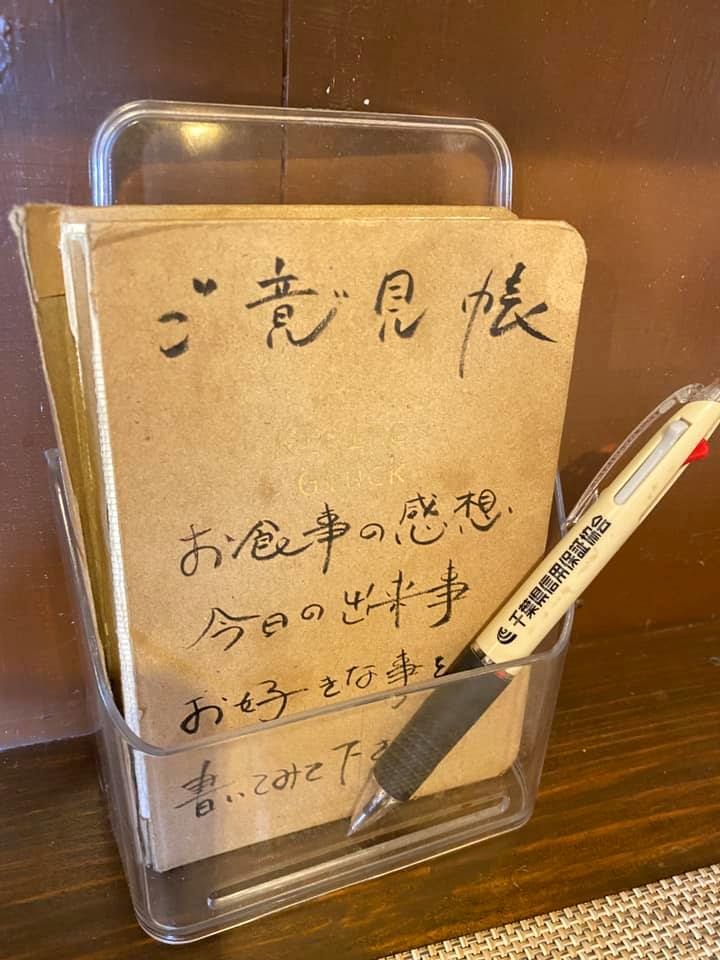 ご意見帳
お食事の感想
今日の出来事
お好きな事を
書いてみて下さ
千葉県信用保証協会